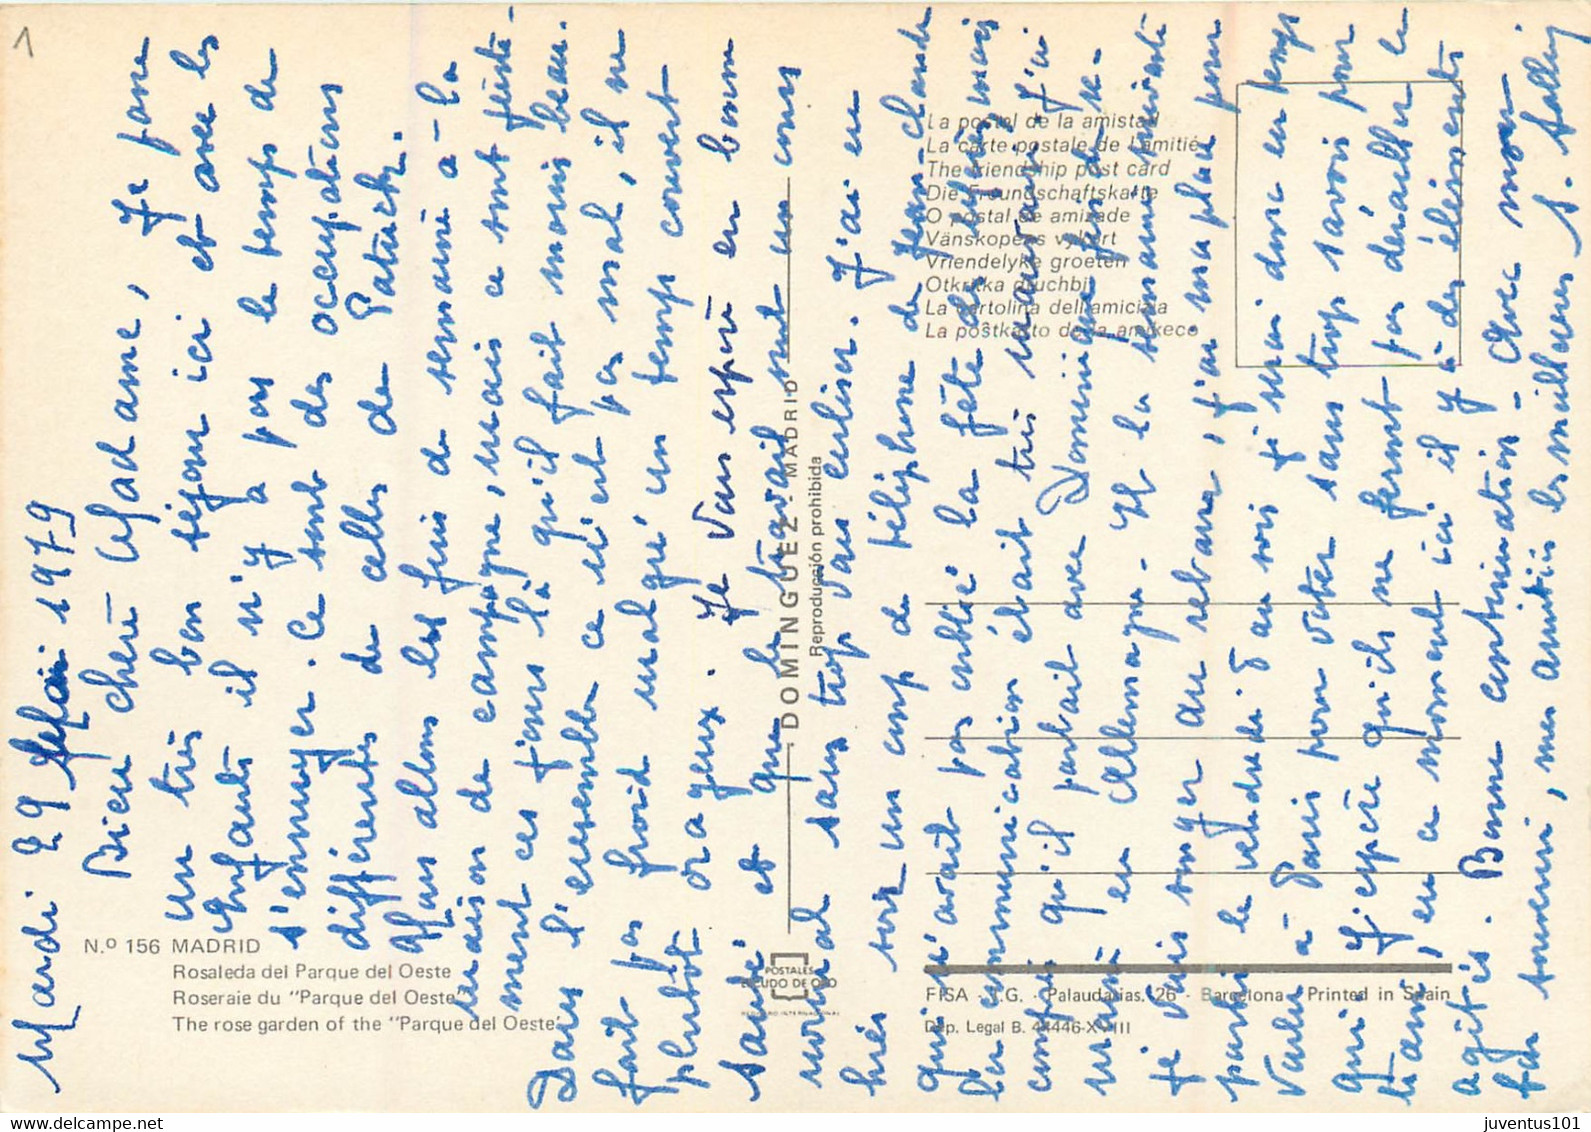 1
Mardi 29 Mai 1979
Bien chère Madame, Je passe
un très bon séjour ici et avec les
enfants il n'y a pas le temps de
s'ennuyer. Ce sont des occupations
différentes de celles de Patrick.
Nous allons les fins de semaine à la
maison de campagne, mais ce sont juste-
ment ces jours là qu'il fait moins beau.
Dans l'ensemble ce n'est pas mal, il ne
fait pas froid malgré un temps couvert
plutôt orageux. Je vous espère en bonne
santé et que le travail suit un cours
normal sans trop vous enliser. J'ai eu
hier soir un coup de téléphone de Jean-Claude
qui n'avait pas oublié la fête des mères mais
la communication était très mauvaise. J'ai
compris qu'il partait avec Dominique fin de se-
maine en Allemagne. Et la semaine suivante
je vais songer au retour, j'ai ma place pour
partir le vendredi 8 au soir je serai donc en temps
voulu à Paris pour voter sans trop savoir pour
qui. J'espère qu'ils ne feront pas dérailler le
train, en ce moment ici il y a des éléments
agités. Bonne continuation - Avec mon
bon souvenir, mes amitiés les meilleures S.
N.º 156 MADRID
Rosaleda del Parque del Oeste
Roseraie du "Parque del Oeste"
The rose garden of the "Parque del Oeste"
DOMINGUEZ - MADRID
Reproducción prohibida
POSTALES
ESCUDO DE ORO
La postal de la amistad
La carte postale de l'amitié
The friendship post card
Die Freundschaftskarte
O postal de amizade
Vänskopens vykort
Vriendelyke groeten
Otkritka druchbi
La cartolina dell'amicizia
La poŝtkarto de la amikeco
FISA - I.G. - Palaudarias, 26 - Barcelona - Printed in Spain
Dep. Legal B. 44446-XVIII
juventus101